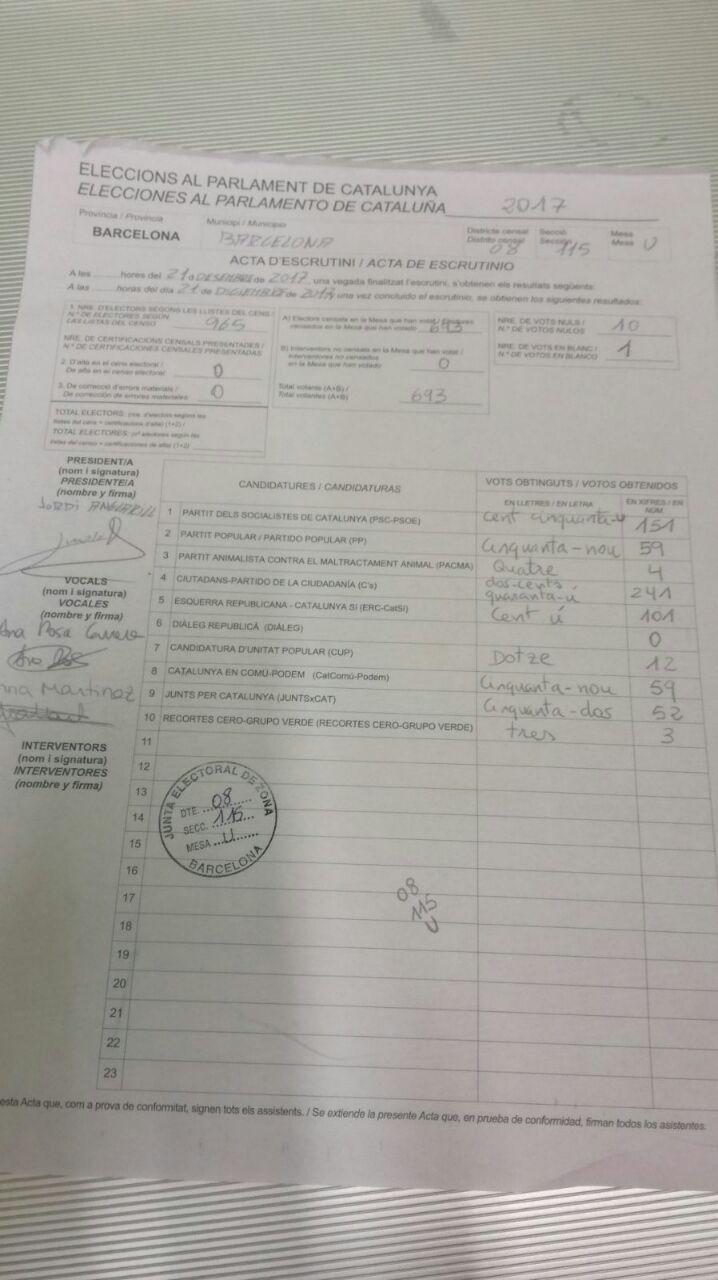 ELECCIONS AL PARLAMENT DE CATALUNYA
ELECCIONES AL PARLAMENTO DE CATALUÑA 2017
Província / Provincia
BARCELONA
Municipi / Municipio
BARCELONA
Districte censal
Distrito censal 08
Secció
Sección 115
Mesa
Mesa U
ACTA D'ESCRUTINI / ACTA DE ESCRUTINIO
A les ......... hores del 21 d DESEMBRE de 2017, una vegada finalitzat l'escrutini, s'obtenen els resultats següents:
A las ......... horas del día 21 de DICIEMBRE de 2017, una vez concluido el escrutinio, se obtienen los siguientes resultados:
1. NRE. D'ELECTORS SEGONS LES LLISTES DEL CENS /
N.º DE ELECTORES SEGÚN
LAS LISTAS DEL CENSO 965
NRE. DE CERTIFICACIONS CENSALS PRESENTADES /
N.º DE CERTIFICACIONES CENSALES PRESENTADAS
2. D'alta en el cens electoral /
De alta en el censo electoral 0
3. De correcció d'errors materials /
De corrección de errores materiales 0
TOTAL ELECTORS: (nre. d'electors segons les
llistes del cens + certificacions d'alta) (1+2) /
TOTAL ELECTORES: (nº electores según las
listas del censo + certificaciones de alta) (1+2)
A) Electors censats en la Mesa que han votat / Electores
censados en la Mesa que han votado 693
B) Interventors no censats en la Mesa que han votat /
Interventores no censados
en la Mesa que han votado 0
Total votants (A+B) /
Total votantes (A+B) 693
NRE. DE VOTS NULS /
N.º DE VOTOS NULOS 10
NRE. DE VOTS EN BLANC /
N.º DE VOTOS EN BLANCO 1
PRESIDENT/A
(nom i signatura)
PRESIDENTE/A
(nombre y firma)
JORDI
VOCALS
(nom i signatura)
VOCALES
(nombre y firma)
Ana Rosa
Martinez
INTERVENTORS
(nom i signatura)
INTERVENTORES
(nombre y firma)
CANDIDATURES / CANDIDATURAS
VOTS OBTINGUTS / VOTOS OBTENIDOS
EN LLETRES / EN LETRA
EN XIFRES / EN NÚM.
1 PARTIT DELS SOCIALISTES DE CATALUNYA (PSC-PSOE) Cent cinquanta-u 151
2 PARTIT POPULAR / PARTIDO POPULAR (PP) Cinquanta-nou 59
3 PARTIT ANIMALISTA CONTRA EL MALTRACTAMENT ANIMAL (PACMA) Quatre 4
4 CIUTADANS-PARTIDO DE LA CIUDADANÍA (C's) dos-cents quaranta-ú 241
5 ESQUERRA REPUBLICANA - CATALUNYA SÍ (ERC-CatSí) Cent ú 101
6 DIÀLEG REPUBLICÀ (DIÀLEG) 0
7 CANDIDATURA D'UNITAT POPULAR (CUP) Dotze 12
8 CATALUNYA EN COMÚ-PODEM (CatComú-Podem) Cinquanta-nou 59
9 JUNTS PER CATALUNYA (JUNTSxCAT) Cinquanta-dos 52
10 RECORTES CERO-GRUPO VERDE (RECORTES CERO-GRUPO VERDE) tres 3
11
12
13
14
15
16
17
18
19
20
21
22
23
JUNTA ELECTORAL DE ZONA
DTE. 08
SECC. 115
MESA U
BARCELONA
08
115
U
esta Acta que, com a prova de conformitat, signen tots els assistents. / Se extiende la presente Acta que, en prueba de conformidad, firman todos los asistentes.